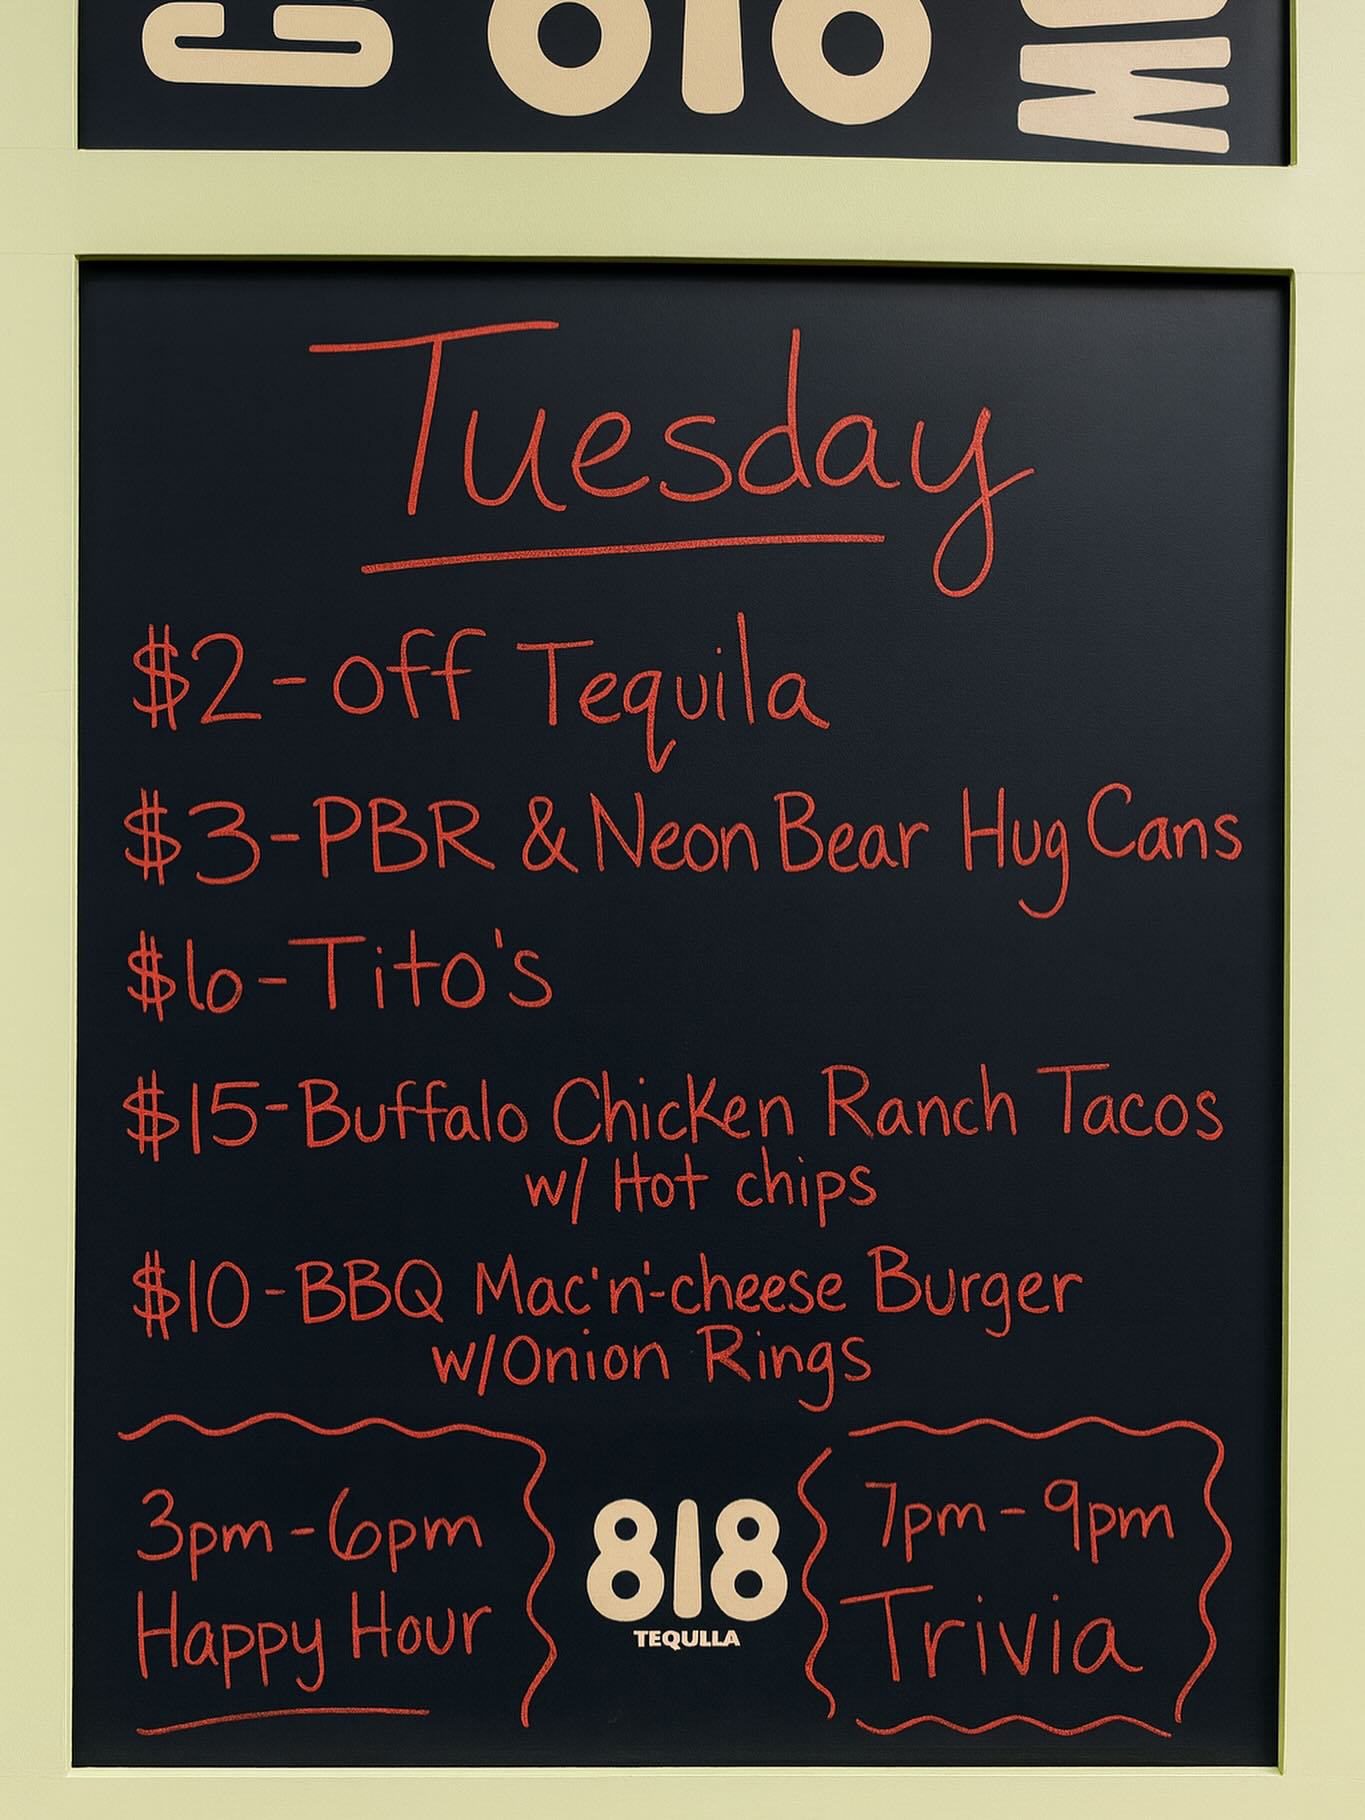 Tuesday
$2-off Tequila
$3-PBR & Neon Bear Hug Cans
$6-Tito's
$15-Buffalo Chicken Ranch Tacos
w/ Hot chips
$10-BBQ Mac'n'-cheese Burger
w/Onion Rings
3pm-6pm
Happy Hour
818
TEQULLA
7pm-9pm
Trivia